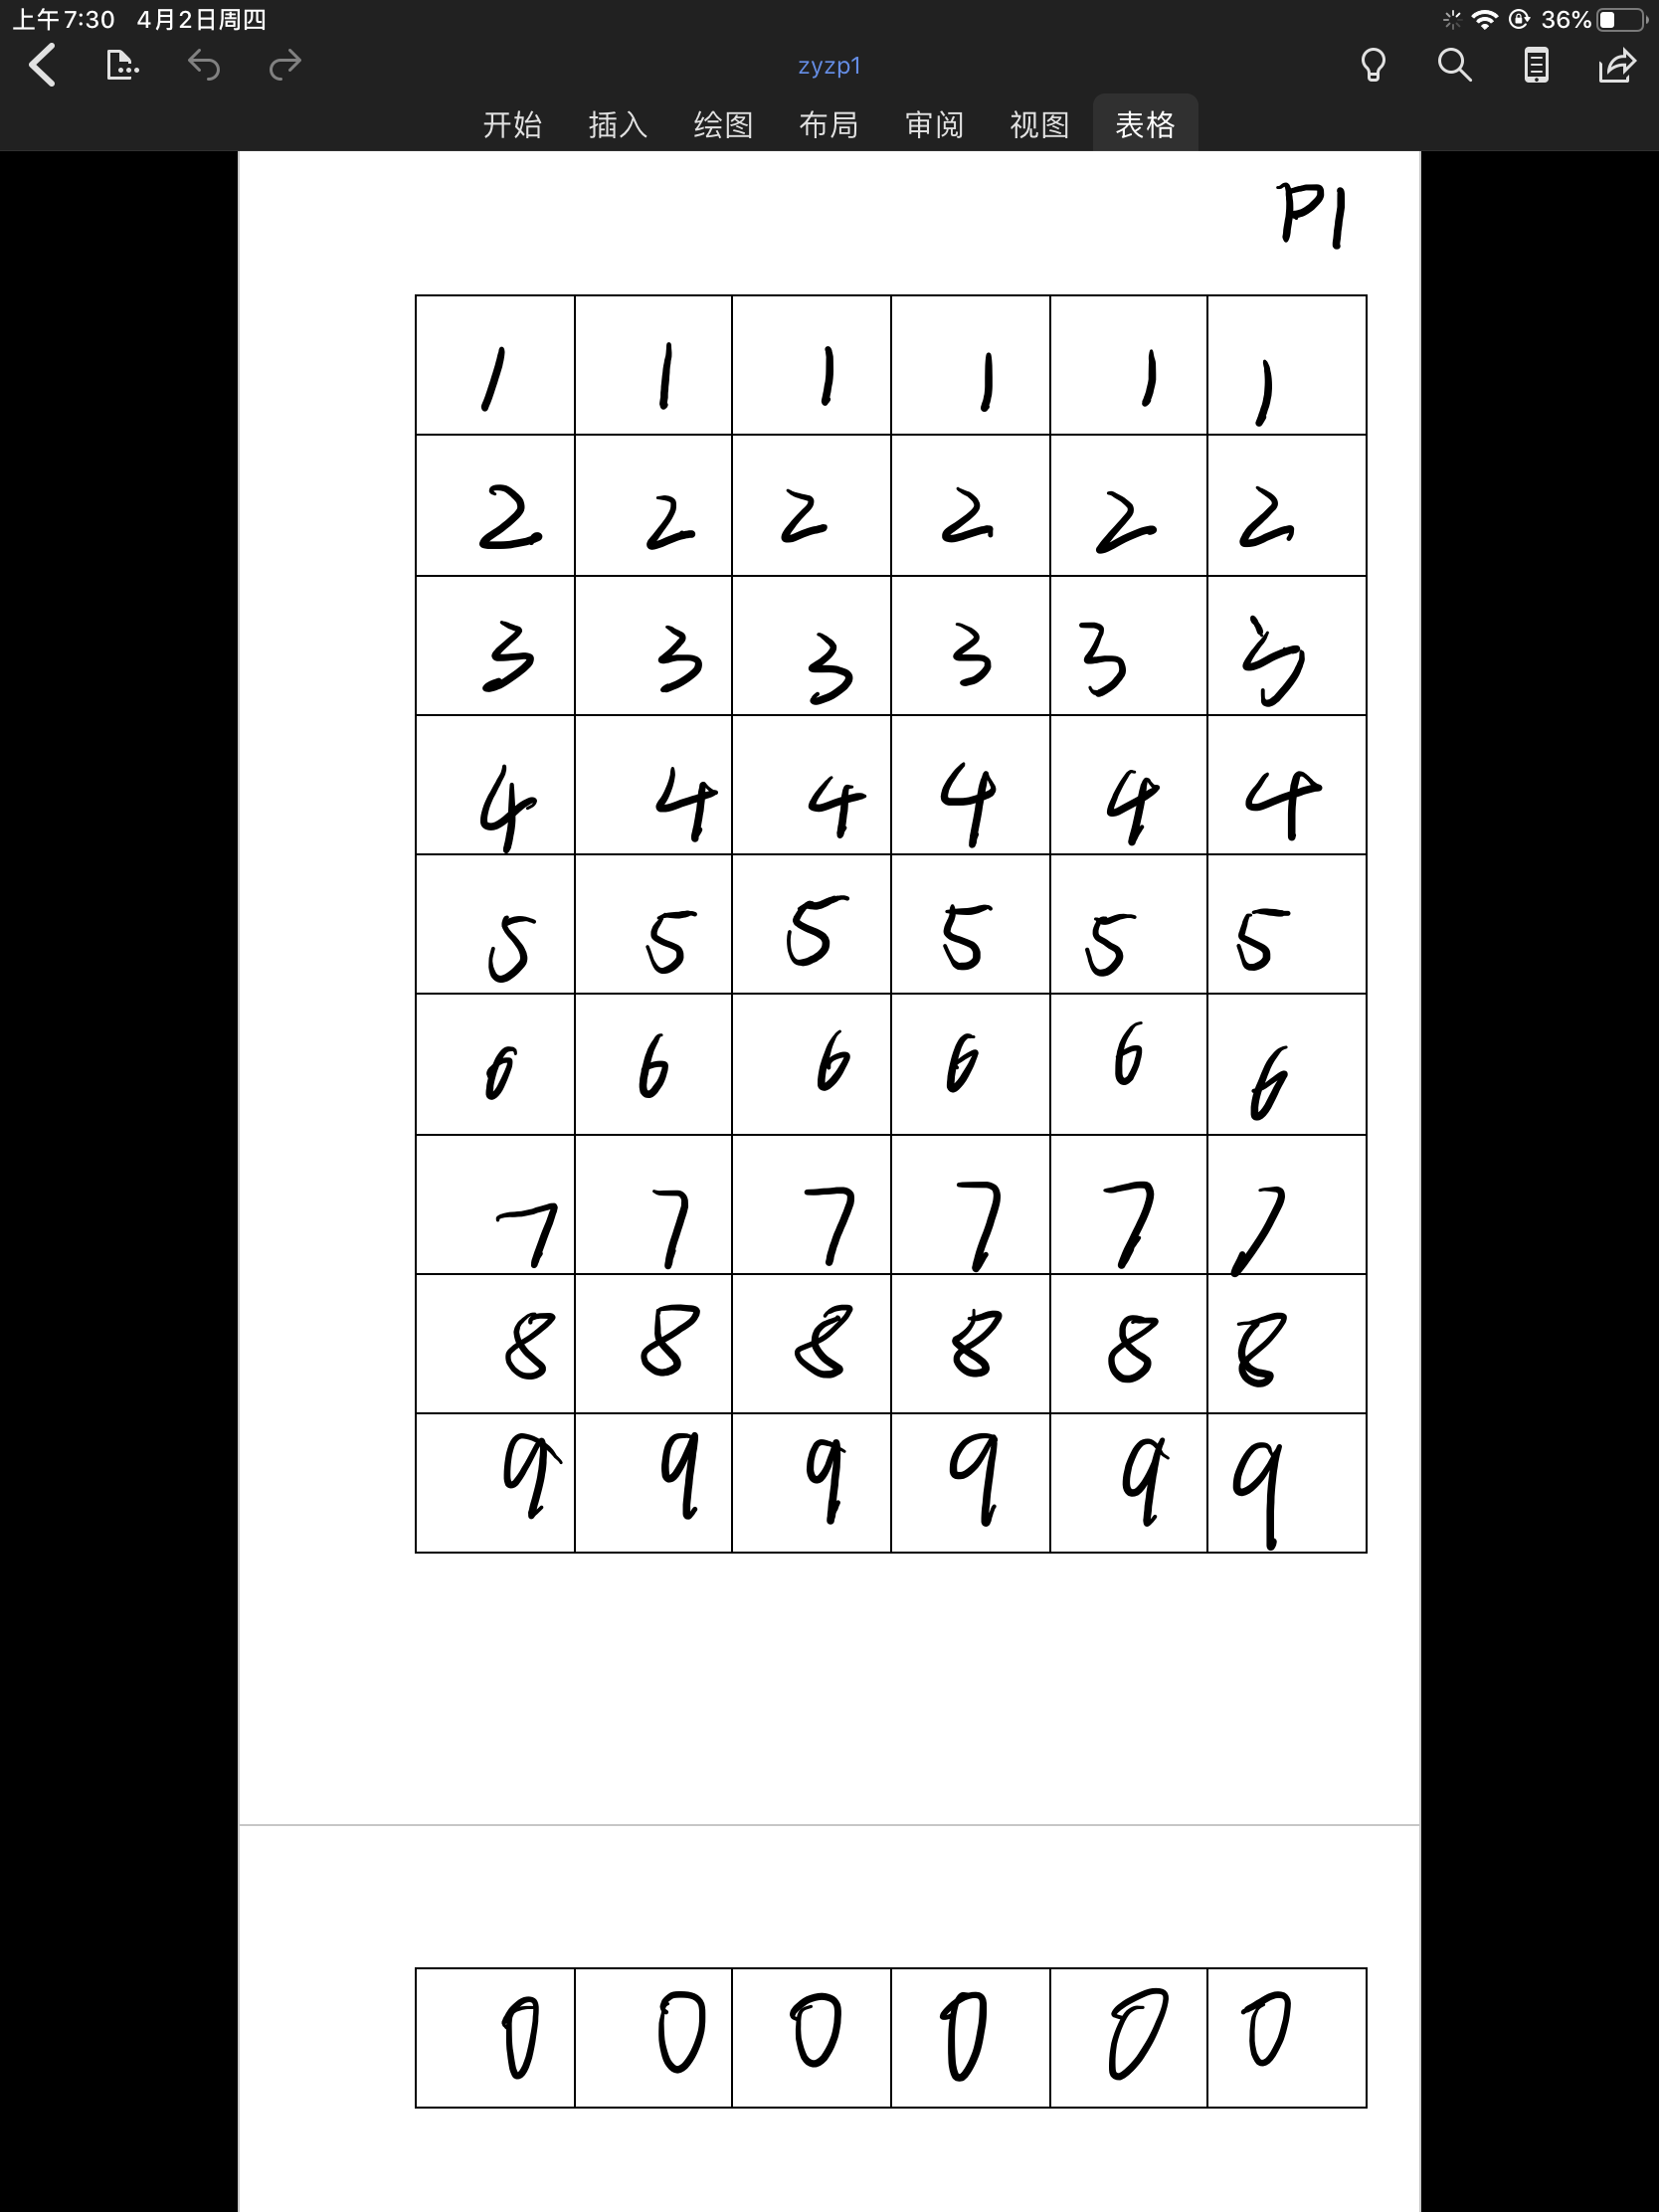 上午7:30 4月2日周四 36%
zyzp1
开始 插入 绘图 布局 审阅 视图 表格
P1
1 1 1 1 1 1
2 2 2 2 2 2
3 3 3 3 3 3
4 4 4 4 4 4
5 5 5 5 5 5
6 6 6 6 6 6
7 7 7 7 7 7
8 8 8 8 8 8
9 9 9 9 9 9
0 0 0 0 0 0